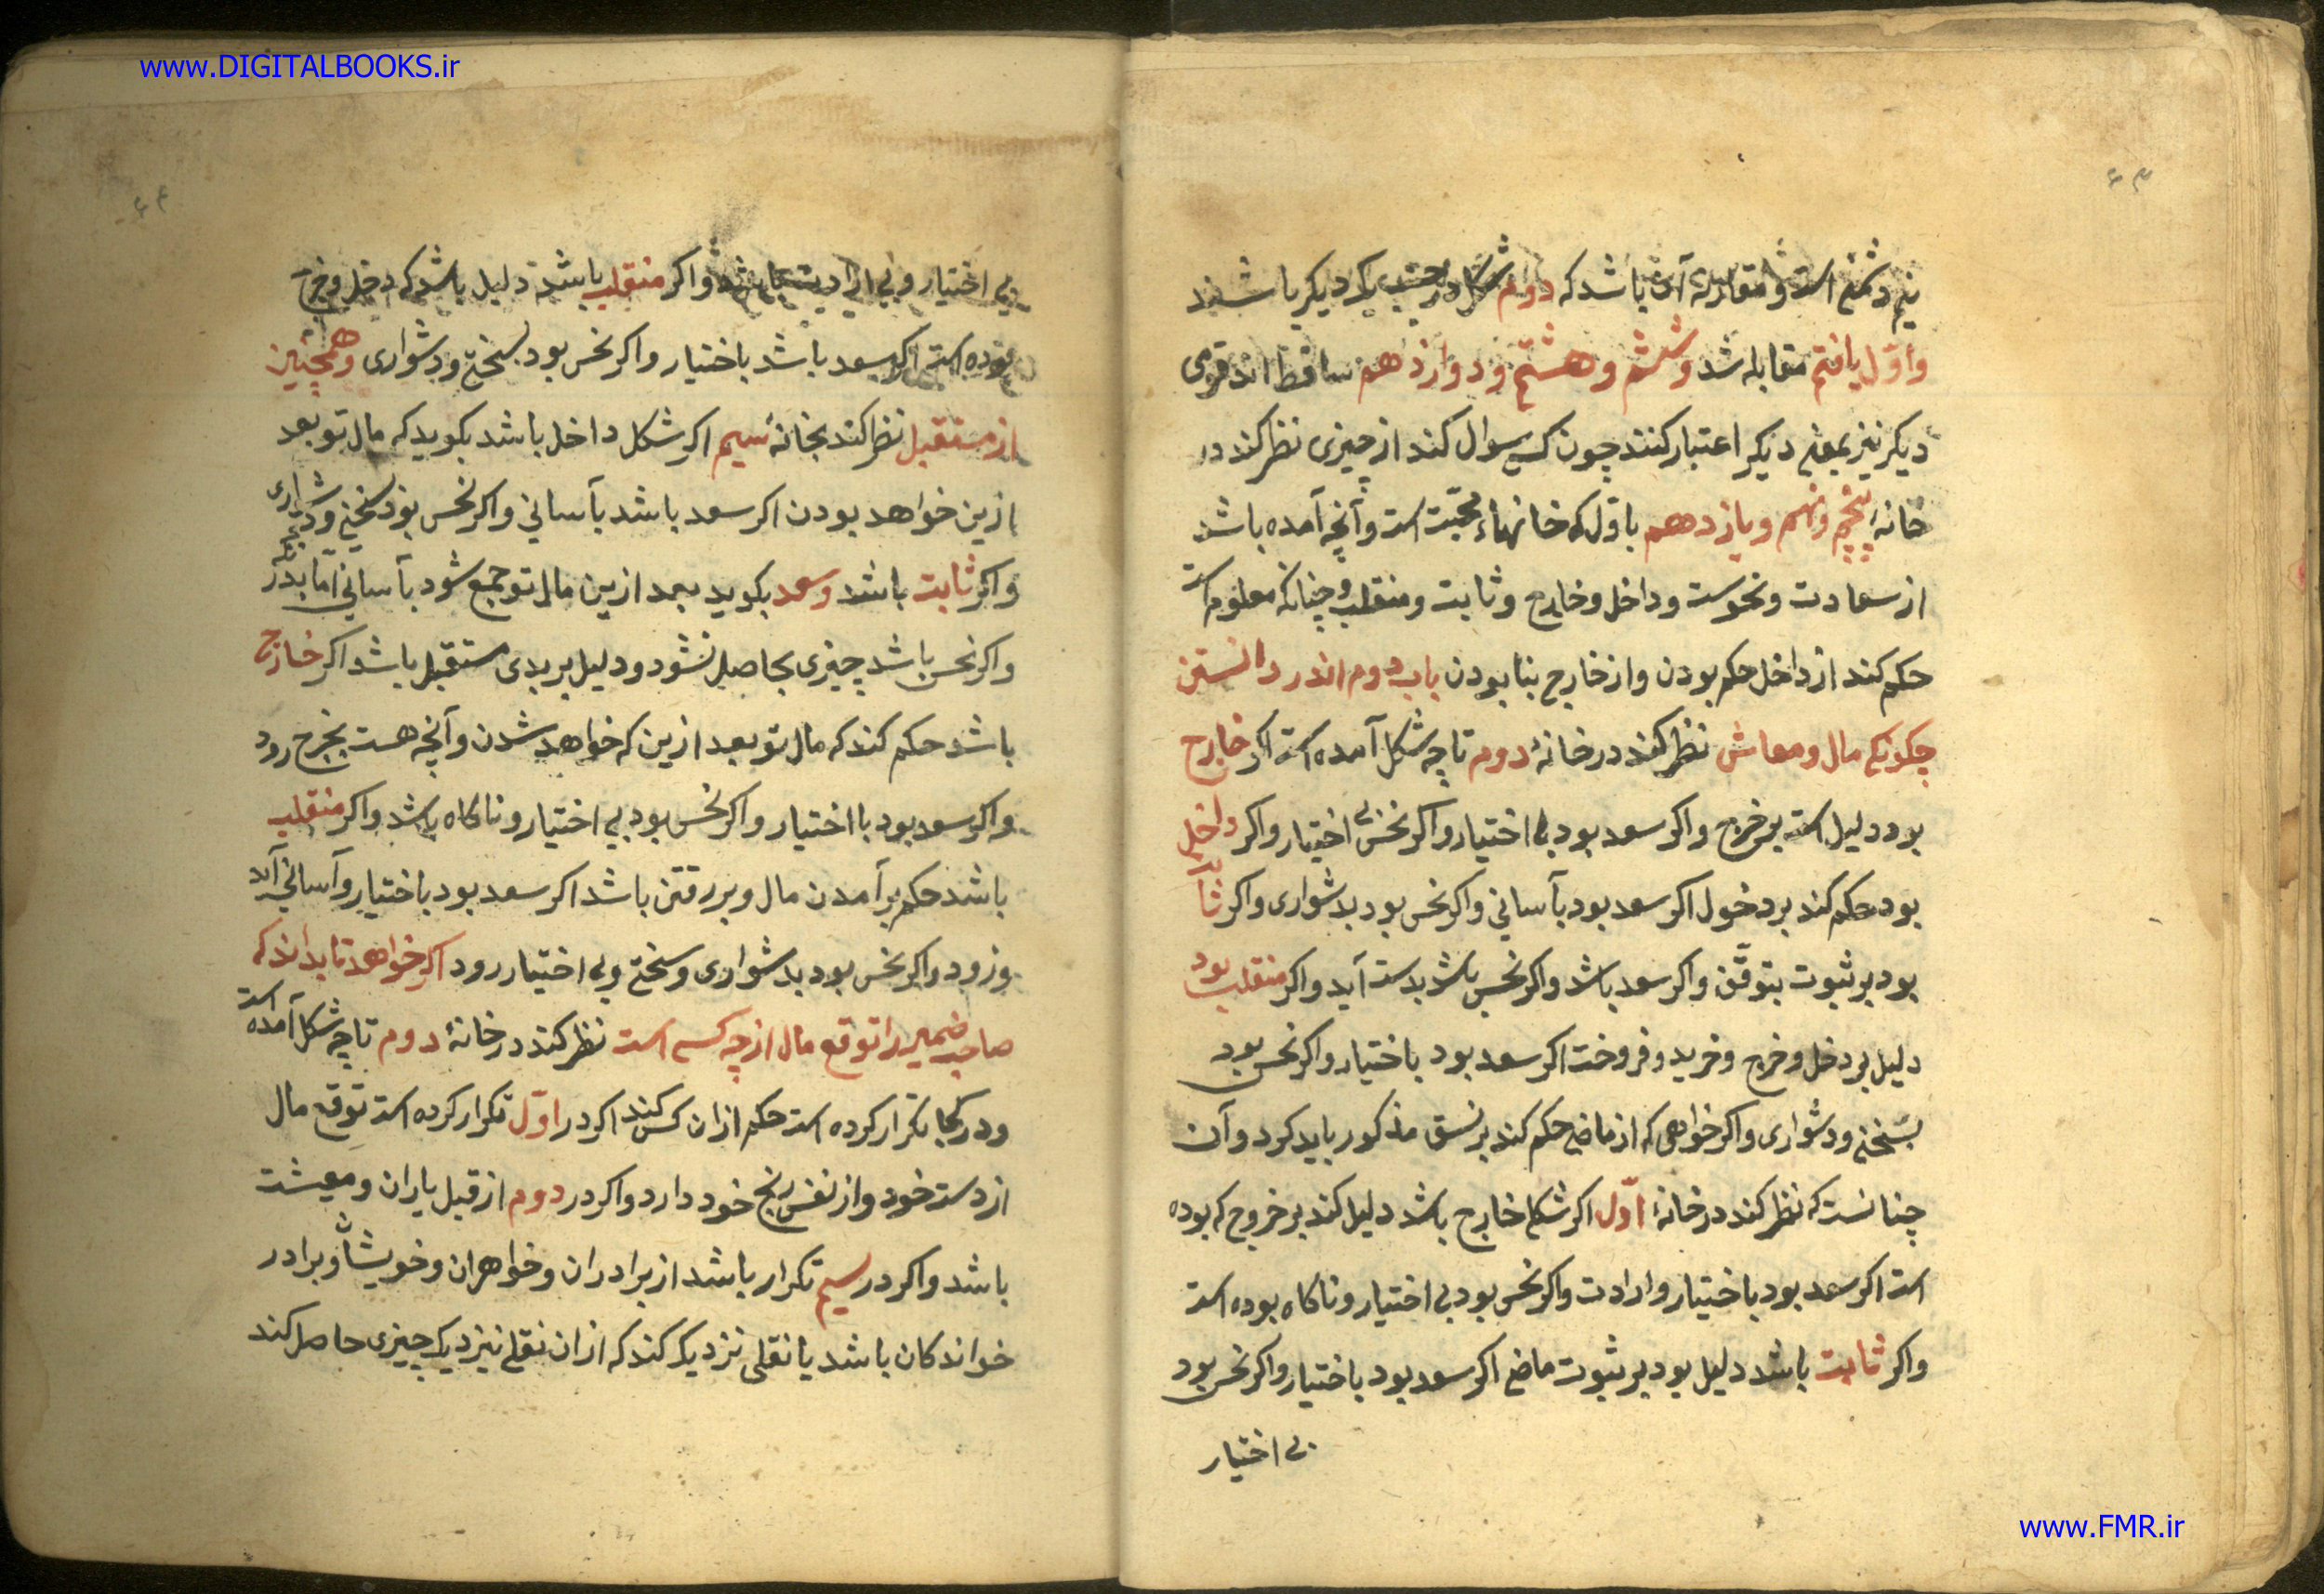 www.DIGITALBOOKS.ir
۶۳
نیم دشمنی است و مقابله آن باشد که دوم شکل در جنب یکدیکر باشند
و اوّل یا هفتم مقابله شد و ششم و هشتم و دوازدهم ساقط اند قومی
دیکر نیز بمعنی دیکر اعتبار کنند چون کسی سوال کند از چیزی نظر کند در
خانهٔ پنجم و نهم و یازدهم با اوّل که خانهاء محبّت است و آنچه آمده باشد
از سعادت و نحوست و داخل و خارج و ثابت و منقلب و چنانکه معلوم است
حکم کند از داخل حکم بودن و از خارج بنا بودن باب دوم اندر دانستن
چکونکی مال و معاش نظر کند در خانهٔ دوم تا چه شکل آمده است اکر خارج
بود دلیل است بر خرج و اکر سعد بود با اختیار و اکر نحس بی اختیار و اکر داخل
بود حکم کند بر دخول اکر سعد بود بآسانی و اکر نحس بود بدشواری و اکر ثابت
بود بر ثبوت بتوقّف و اکر سعد باشد و اکر نحس باشد بدست آید و اکر منقلب بود
دلیل بر دخل و خرج و خرید و فروخت اکر سعد بود باختیار و اکر نحس بود
بسختی و دشواری و اکر خواهی که از ماضی حکم کند بر نسق مذکور باید کرد و آن
چنانست که نظر کند در خانهٔ اوّل اکر شکل خارج باشد دلیل کند بر خروج که بوده
است اکر سعد بود باختیار و ارادت و اکر نحس بود بی اختیار و ناکاه بوده است
و اکر ثابت باشد دلیل بود بر ثبوت ماضی اکر سعد بود باختیار و اکر نحس بود
بی اختیار
۶۴
بی اختیار و بی ارادت باشد و اکر منقلب باشد دلیل باشد که دخل و خرج
بوده است اکر سعد باشد باختیار و اکر نحس بود بسختی و دشواری و همچنین
از مستقبل نظر کند بخانهٔ سیم اکر شکل داخل باشد بکوید که مال تو بعد
ازین خواهد بودن اکر سعد باشد بآسانی و اکر نحس بود بسختی و دشواری
و اکر ثابت باشد و سعد بکوید بعد ازین مال تو جمع شود بآسانی اما بدرنک
و اکر نحس باشد چیزی بحاصل نشود و دلیل بر بدی مستقبل باشد اکر خارج
باشد حکم کند که مال تو بعد ازین که خواهد شدن و آنچه هست بخرج رود
و اکر سعد بود با اختیار و اکر نحس بود بی اختیار و ناکاه باشد و اکر منقلب
باشد حکم بر آمدن مال و بر رفتن باشد اکر سعد بود باختیار و آسانی آید
و رود و اکر نحس بود بدشواری و سختی و بی اختیار رود اکر خواهد تا بداند که
صاحب ضمیر را توقع مال از چه کسی است نظر کند در خانهٔ دوم تا چه شکل آمده است
و در کجا تکرار کرده است حکم از ان کس کند اکر در اوّل تکرار کرده است توقع مال
از دست خود و از نفس رنج خود دارد و اکر در دوم از قبل یاران و معیشت
باشد و اکر در سیم تکرار باشد از برادران و خواهران و خویشان و برادر
خواندکان باشد یا نقلی نزدیک کند که از ان نقل نیز دیک چیزی حاصل کند
www.FMR.ir